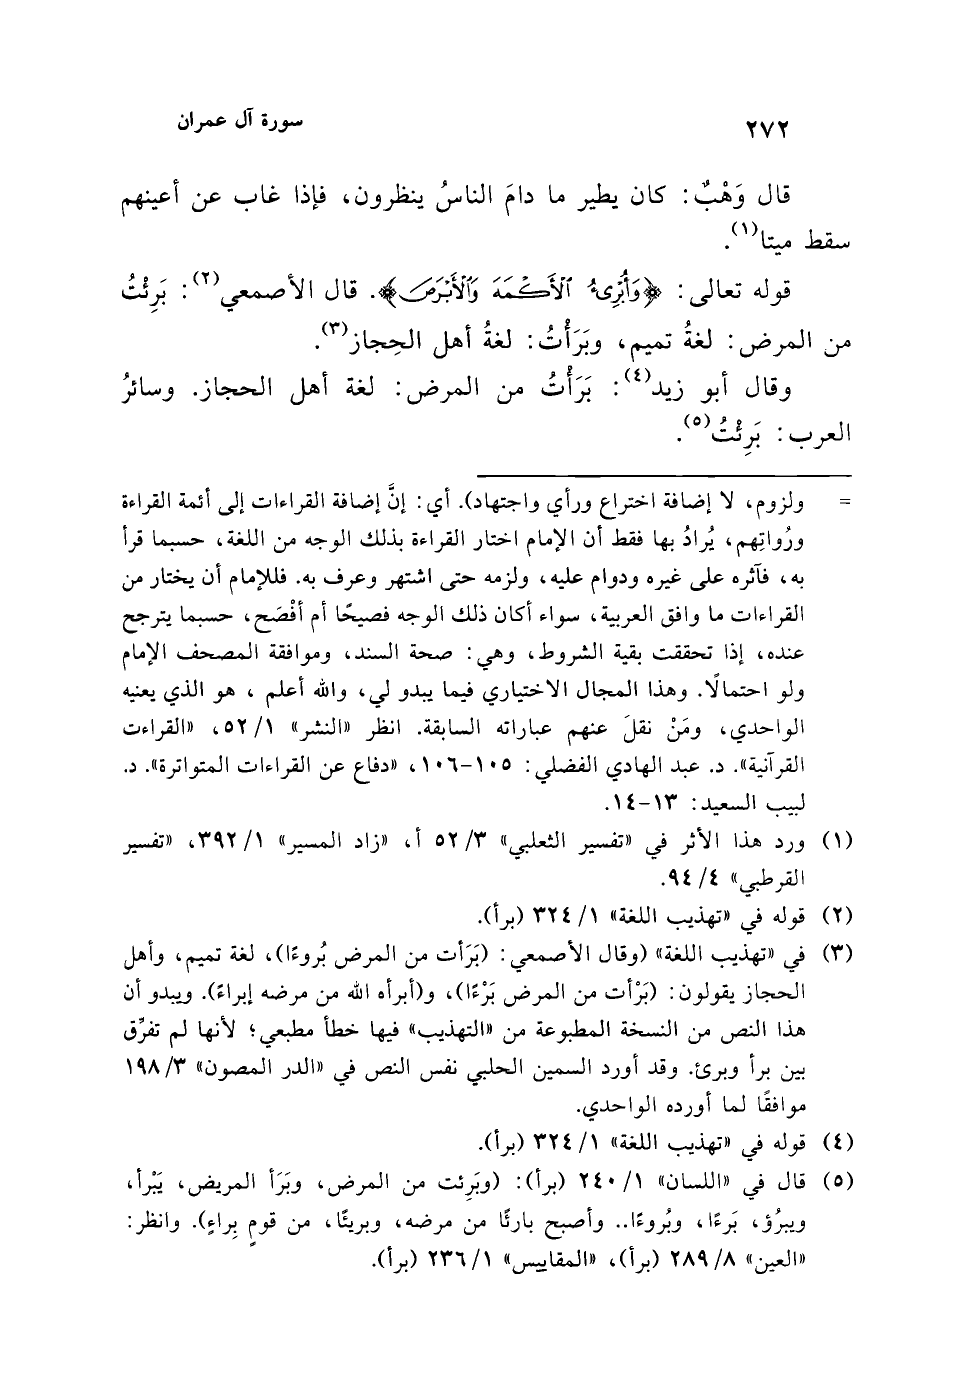 ٢٧٢ سورة آل عمران
قال وَهْبٌ: كان يطير ما دامَ الناسُ ينظرون، فإذا غاب عن أعينهم
سقط ميتا(١).
قوله تعالى: ﴿وَأُبْرِئُ ٱلْأَكْمَهَ وَٱلْأَبْرَصَ﴾. قال الأصمعي(٢): بَرِئْتُ
من المرض: لغةُ تميم، وبَرَأْتُ: لغةُ أهل الحِجاز(٣).
وقال أبو زيد(٤): بَرَأْتُ من المرض: لغة أهل الحجاز. وسائرُ
العرب: بَرِئْتُ(٥).
= ولزوم، لا إضافة اختراع ورأي واجتهاد). أي: إنَّ إضافة القراءات إلى أئمة القراءة
ورُواتِهم، يُرادُ بها فقط أن الإمام اختار القراءة بذلك الوجه من اللغة، حسبما قرأ
به، فآثره على غيره ودوام عليه، ولزمه حتى اشتهر وعرف به. فللإمام أن يختار من
القراءات ما وافق العربية، سواء أكان ذلك الوجه فصيحًا أم أفْصَح، حسبما يترجح
عنده، إذا تحققت بقية الشروط، وهي: صحة السند، وموافقة المصحف الإمام
ولو احتمالًا. وهذا المجال الاختياري فيما يبدو لي، والله أعلم ، هو الذي يعنيه
الواحدي، ومَنْ نقلَ عنهم عباراته السابقة. انظر «النشر» ١/ ٥٢، «القراءت
القرآنية». د. عبد الهادي الفضلي: ١٠٥-١٠٦، «دفاع عن القراءات المتواترة». د.
لبيب السعيد: ١٣-١٤.
(١) ورد هذا الأثر في «تفسير الثعلبي» ٣/ ٥٢ أ، «زاد المسير» ١/ ٣٩٢، «تفسير
القرطبي» ٤/ ٩٤.
(٢) قوله في «تهذيب اللغة» ١/ ٣٢٤ (برأ).
(٣) في «تهذيب اللغة» (وقال الأصمعي: (بَرَأت من المرض بُروءًا)، لغة تميم، وأهل
الحجاز يقولون: (بَرْأت من المرض بَرْءًا)، و(أبرأه الله من مرضه إبراءً). ويبدو أن
هذا النص من النسخة المطبوعة من «التهذيب» فيها خطأ مطبعي؛ لأنها لم تفرِّق
بين برأ وبرئ. وقد أورد السمين الحلبي نفس النص في «الدر المصون» ٣/ ١٩٨
موافقًا لما أورده الواحدي.
(٤) قوله في «تهذيب اللغة» ١/ ٣٢٤ (برأ).
(٥) قال في «اللسان» ١/ ٢٤٠ (برأ): (وبَرِئت من المرض، وبَرَأ المريض، يَبْرأ،
ويبرُؤ، بَرءًا، وبُروءًا.. وأصبح بارئًا من مرضه، وبريئًا، من قومٍ بِراءٍ). وانظر:
«العين» ٨/ ٢٨٩ (برأ)، «المقاييس» ١/ ٢٣٦ (برأ).